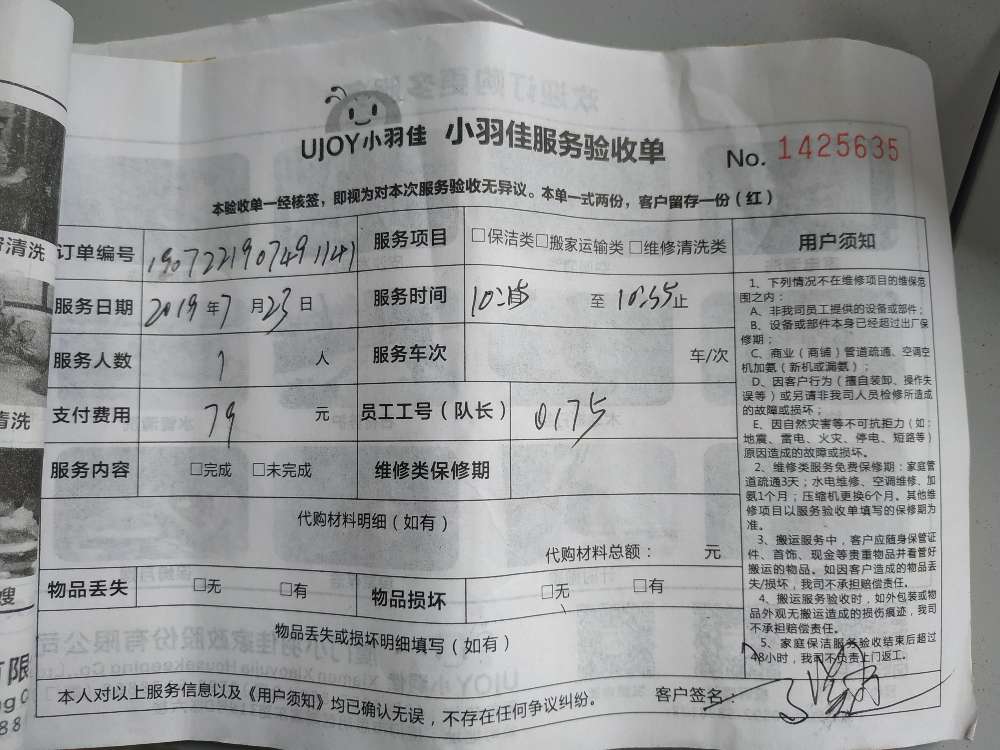 UJOY小羽佳 小羽佳服务验收单 No. 1425635
本验收单一经核签，即视为对本次服务验收无异议。本单一式两份，客户留存一份（红）
订单编号 1907221907491141 服务项目 □保洁类□搬家运输类 □维修清洗类
服务日期 2019年7月23日 服务时间 10:15 至 10:55止
服务人数 1 人 服务车次 车/次
支付费用 79 元 员工工号（队长） 0175
服务内容 □完成 □未完成 维修类保修期
代购材料明细（如有）
代购材料总额： 元
物品丢失 □无 □有 物品损坏 □无 □有
物品丢失或损坏明细填写（如有）
本人对以上服务信息以及《用户须知》均已确认无误，不存在任何争议纠纷。 客户签名：
用户须知
1、下列情况不在维修项目的维保范
围之内：
A、非我司员工提供的设备或部件；
B、设备或部件本身已经超过出厂保
修期；
C、商业（商铺）管道疏通、空调空
机加氨（新机或漏氨）；
D、因客户行为（擅自装卸、操作失
误等）或另请非我司人员检修所造成
的故障或损坏；
E、因自然灾害等不可抗拒力（如：
地震、雷电、火灾、停电、短路等）
原因造成的故障或损坏。
2、维修类服务免费保修期：家庭管
道疏通3天；水电维修、空调维修、加
氨1个月；压缩机更换6个月。其他维
修项目以服务验收单填写的保修期为
准。
3、搬运服务中，客户应随身保管证
件、首饰、现金等贵重物品并看管好
搬运的物品。如因客户造成的物品丢
失/损坏，我司不承担赔偿责任。
4、搬运服务验收时，如外包装或物
品外观无搬运造成的损伤痕迹，我司
不承担赔偿责任。
5、家庭保洁服务验收结束后超过
48小时，我司不负责上门返工。
清洗
清洗
嫂
有限
88